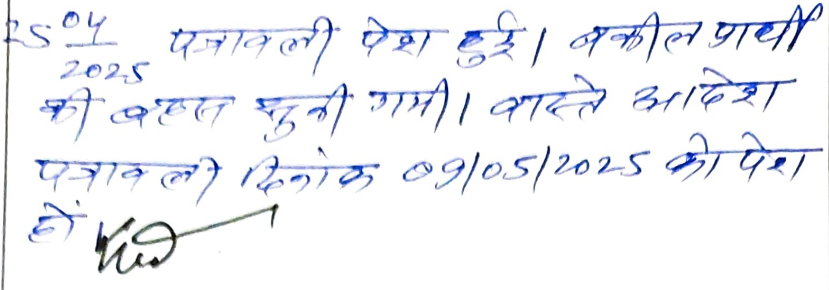 25 04/2025 पत्रावली पेश हुई। वकील प्रार्थी
की बहस सुनी गयी। वास्ते आदेश
पत्रावली दिनांक 09/05/2025 को पेश
हो